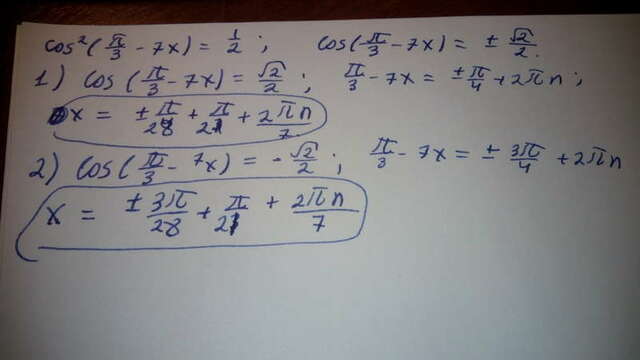 cos²(π/3 - 7x) = 1/2 ; cos(π/3 - 7x) = ± √2/2.
1) cos (π/3 - 7x) = √2/2 ; π/3 - 7x = ± π/4 + 2πn ;
x = ± π/28 + π/21 + 2πn/7
2) cos(π/3 - 7x) = - √2/2 ; π/3 - 7x = ± 3π/4 + 2πn
x = ± 3π/28 + π/21 + 2πn/7